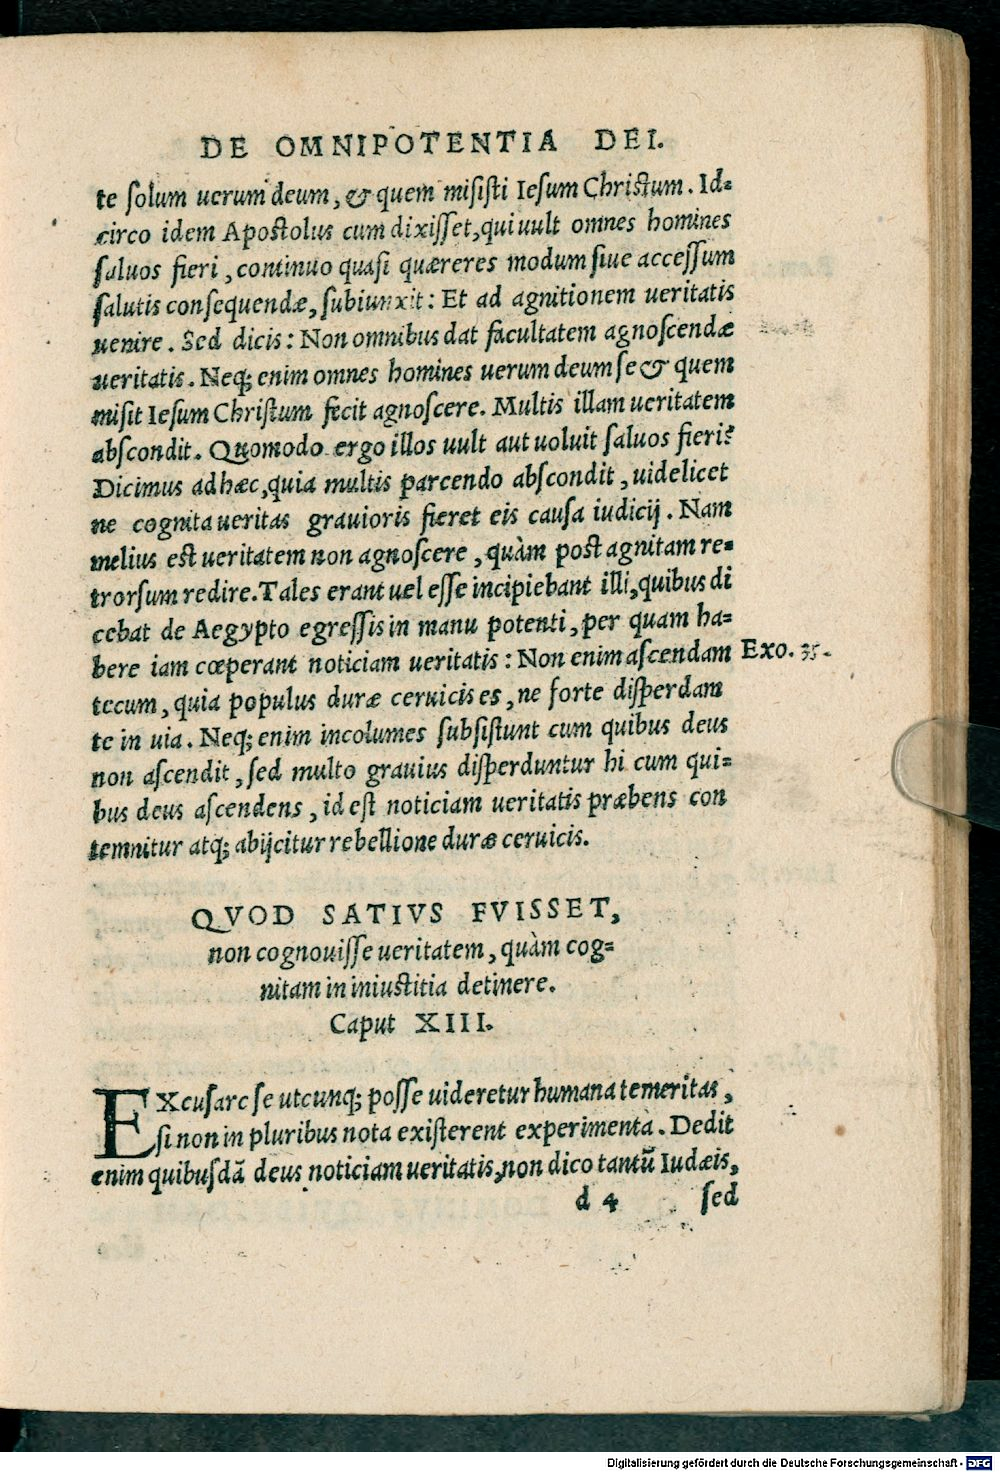 DE OMNIPOTENTIA DEI.
te solum uerum deum, & quem misisti Iesum Christum. Id=
circo idem Apostolus cum dixisset, qui uult omnes homines
saluos fieri, continuo quasi quæreres modum siue accessum
salutis consequendæ, subiunxit: Et ad agnitionem ueritatis
uenire. Sed dicis: Non omnibus dat facultatem agnoscendæ
ueritatis. Neq; enim omnes homines uerum deum se & quem
misit Iesum Christum fecit agnoscere. Multis illam ueritatem
abscondit. Quomodo ergo illos uult aut uoluit saluos fieri?
Dicimus ad hæc, quia multis parcendo abscondit, uidelicet
ne cognita ueritas grauioris fieret eis causa iudicij. Nam
melius est ueritatem non agnoscere, quàm post agnitam re=
trorsum redire. Tales erant uel esse incipiebant illi, quibus di
cebat de Aegypto egressis in manu potenti, per quam ha=
bere iam cœperant noticiam ueritatis: Non enim ascendam
Exo. 35.
tecum, quia populus duræ ceruicis es, ne forte disperdam
te in uia. Neq; enim incolumes subsistunt cum quibus deus
non ascendit, sed multo grauius disperduntur hi cum qui=
bus deus ascendens, id est noticiam ueritatis præbens con
temnitur atq; abijcitur rebellione duræ ceruicis.
QVOD SATIVS FVISSET,
non cognouisse ueritatem, quàm cog=
nitam in iniustitia detinere.
Caput XIII.
EXcusare se utcunq; posse uideretur humana temeritas,
si non in pluribus nota existerent experimenta. Dedit
enim quibusdã deus noticiam ueritatis, non dico tantũ Iudæis,
d 4 sed
Digitalisierung gefördert durch die Deutsche Forschungsgemeinschaft - DFG